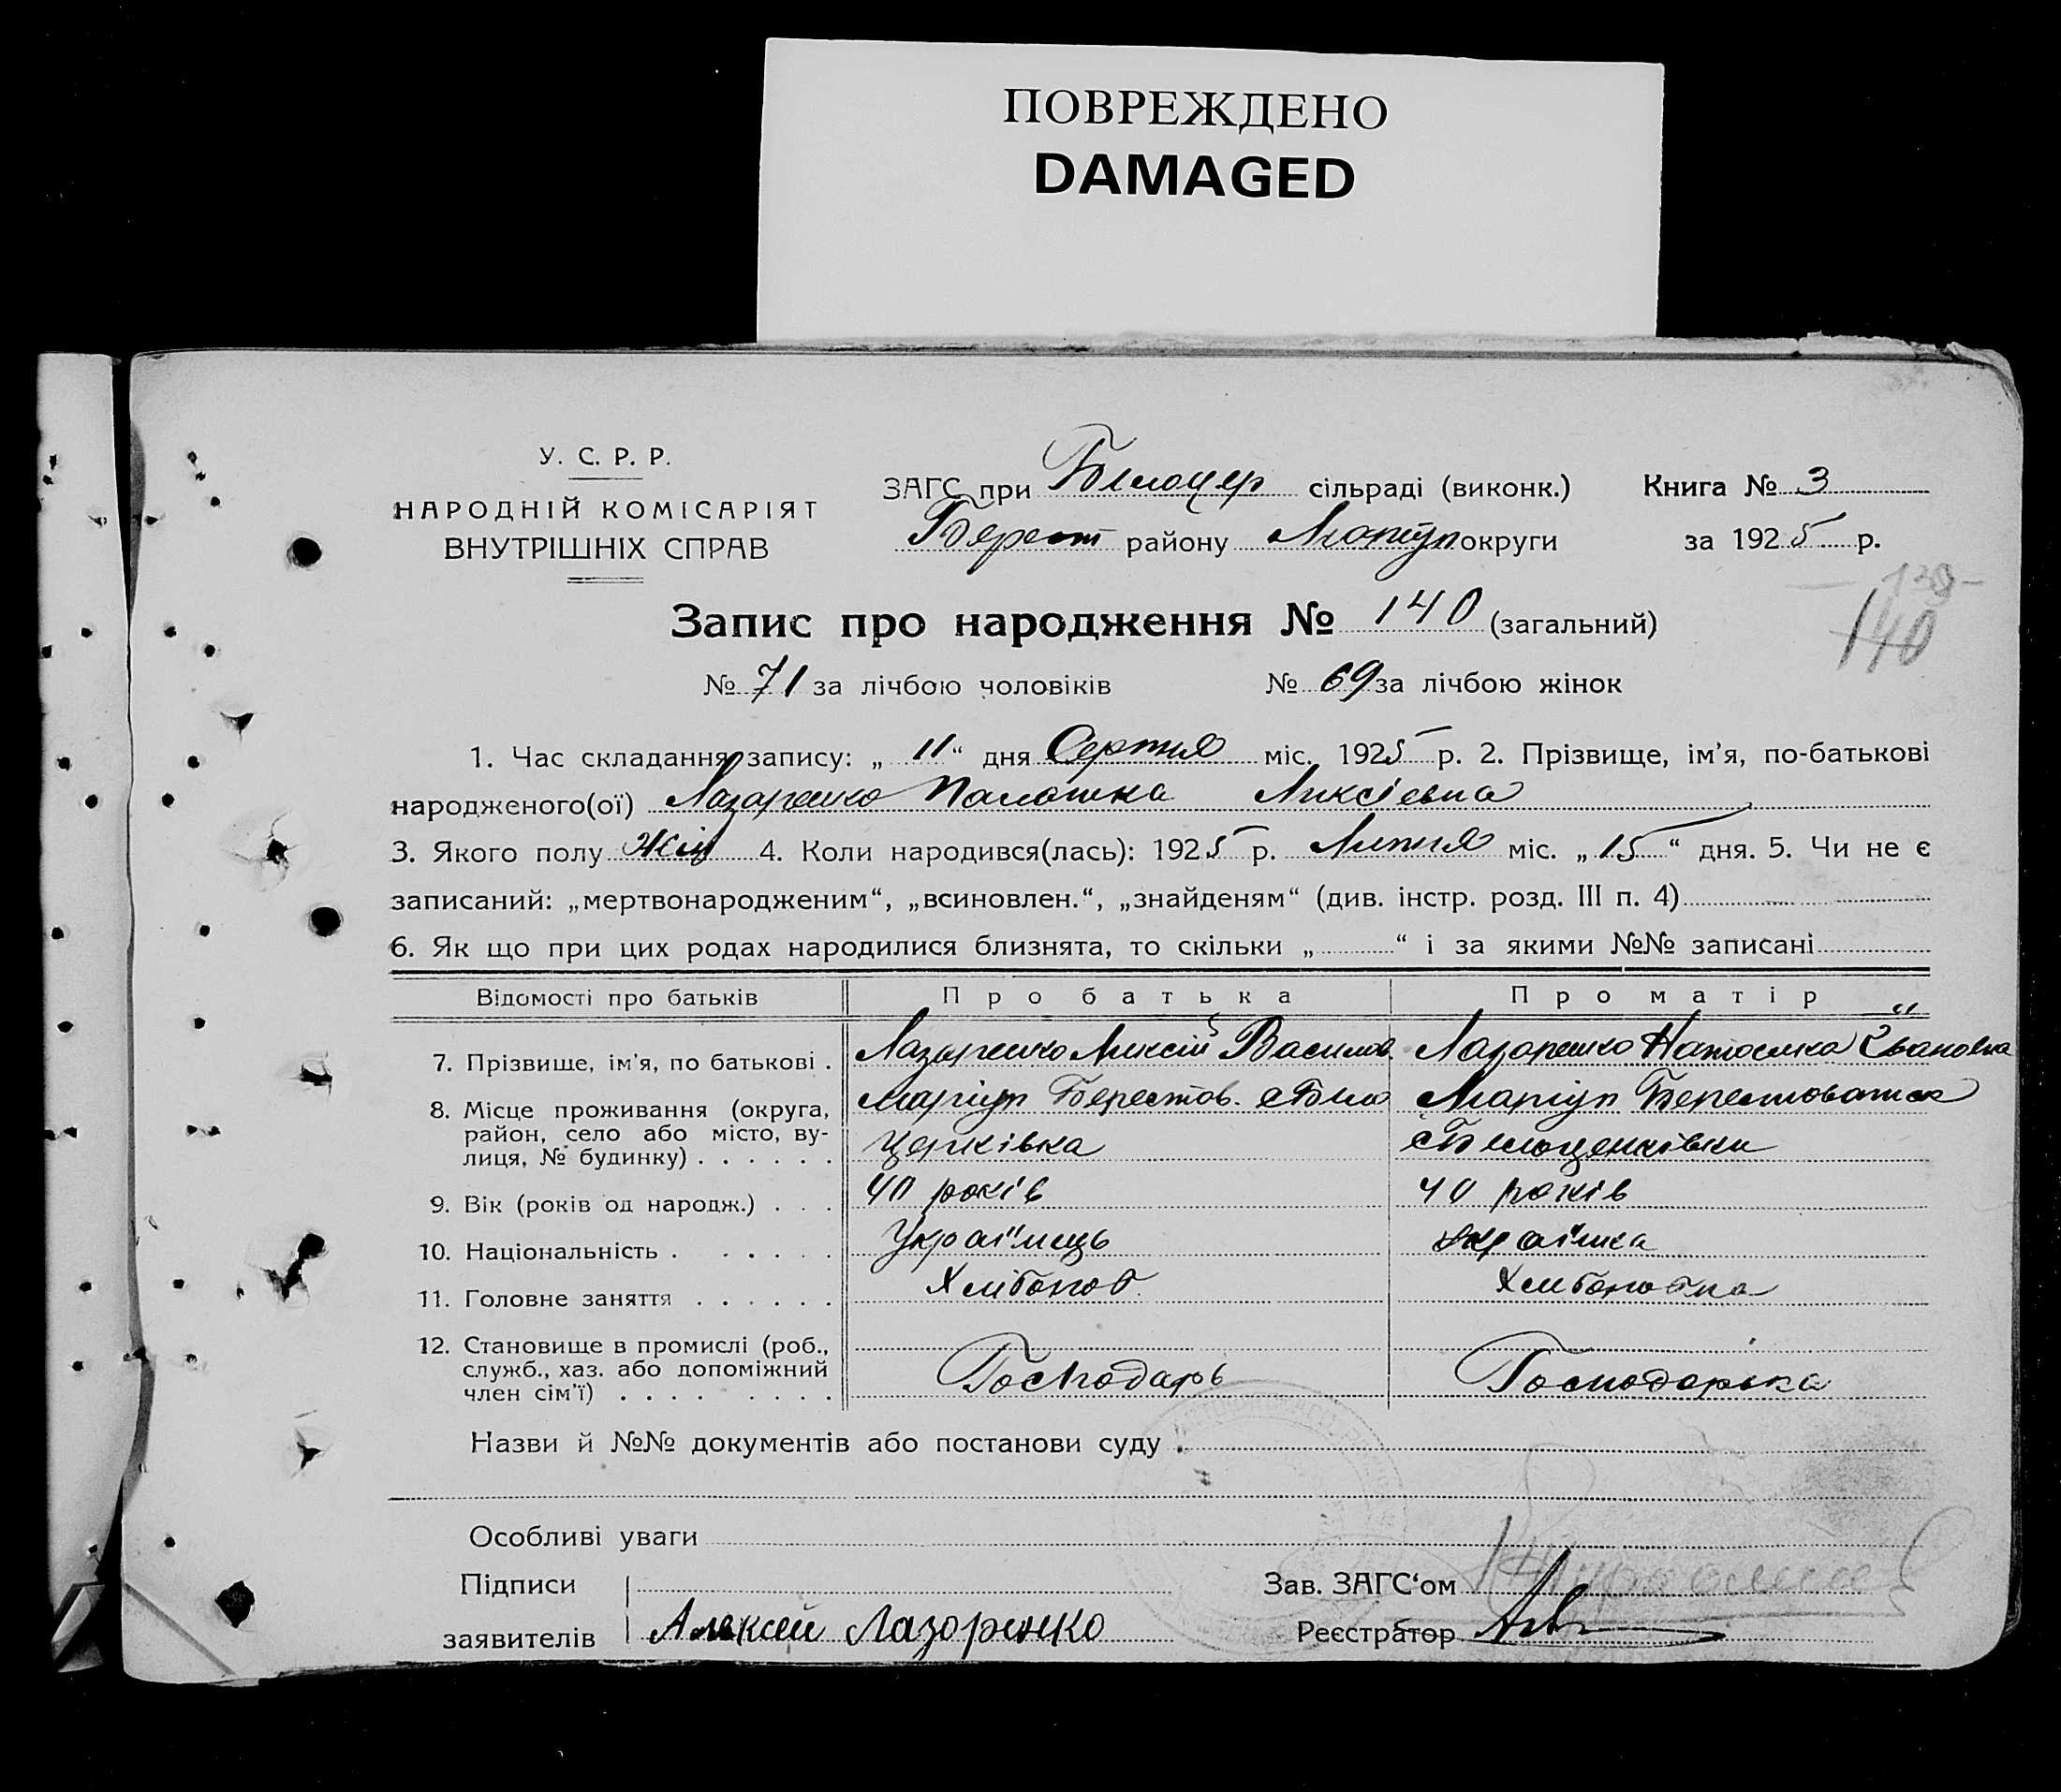 ПОВРЕЖДЕНО
DAMAGED
У. С. Р. Р.
НАРОДНІЙ КОМІСАРІЯТ
ВНУТРІШНІХ СПРАВ
ЗАГС при Білоцер сільраді (виконк.) Книга № 3
Берест району Маріуп округи за 1925 р.
139
140
Запис про народження № 140 (загальний)
№ 71 за лічбою чоловіків № 69 за лічбою жінок
1. Час складання запису: „ 11 “ дня Серпня міс. 1925 р. 2. Прізвище, ім’я, по-батькові
народженого(ої) Лазаренко Палашка Аиксіевна
3. Якого полу Жін 4. Коли народився(лась): 1925 р. Липня міс. „ 15 “ дня. 5. Чи не є
записаний: „мертвонародженим“, „всиновлен.“, „знайденям“ (див. інстр. розд. III п. 4)
6. Як що при цих родах народилися близнята, то скільки „ “ і за якими №№ записані
Відомості про батьків Про батька Про матір
7. Прізвище, ім’я, по батькові . Лазаренко Аиксій Васильов. Лазаренко Наталка Івановна
8. Місце проживання (округа, Маріуп Берестов. с Біло Маріуп Берестоватск
район, село або місто, ву- церківка с Білоцерківки
лиця, № будинку) . . . . . .
9. Вік (років од народж.) . . . 40 років 40 років
10. Національність . . . . . . Україньць Украінка
11. Головне заняття . . . . . . Хлібороб. Хлиборобка
12. Становище в промислі (роб.,
служб., хаз. або допоміжний Господарь Господарька
член сім’ї) . . . . . . . .
Назви й №№ документів або постанови суду .
Особливі уваги
Підписи Зав. ЗАГС‘ом
заявителів Алексей Лазоренко Реєстратор